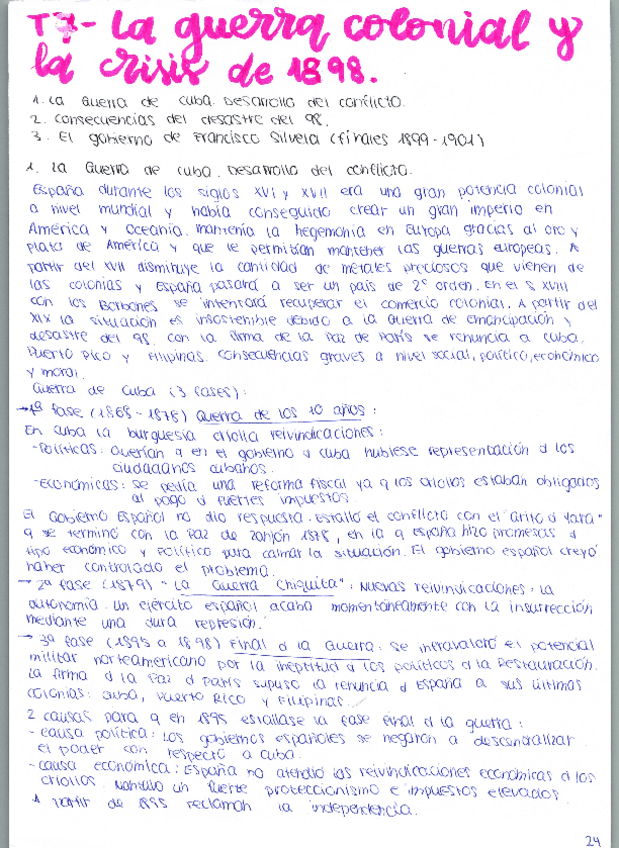 T7- La guerra colonial y
la crisis de 1898.
1. La Guerra de Cuba. Desarrollo del conflicto.
2. Consecuencias del desastre del 98.
3. El gobierno de Francisco Silvela (finales 1899-1901)
1. La Guerra de Cuba. Desarrollo del conflicto.
España durante los siglos XVI y XVII era una gran potencia colonial
a nivel mundial y había conseguido crear un gran imperio en
América y Oceanía. mantenía la hegemonía en Europa gracias al oro y
plata de América y que le permitían mantener las guerras europeas. A
partir del XVII dismituye la cantidad de metales preciosos que vienen de
las colonias y España pasará a ser un país de 2º orden. En el S XVIII
con los Borbones se intentará recuperar el comercio colonial. A partir del
XIX la situación es insostenible debido a la Guerra de emancipación y
desastre del 98. con la firma de la Paz de París se renuncia a Cuba,
Puerto Pico y Filipinas. Consecuencias graves a nivel social, político, económico
y moral.
Guerra de Cuba (3 fases):
→1ª fase (1868-1878) Guerra de los 10 años:
En Cuba la burguesía criolla reivindicaciones:
-Políticas: Querían q en el gobierno d Cuba hubiese representación d los
ciudadanos cubanos.
-Económicas: se pedía una reforma fiscal ya q los criollos estaban obligados
al pago d fuertes impuestos
El Gobierno Español no dio respuesta. Estalló el conflicto con el "Grito d Yara"
q se terminó con la Paz de Zanjón 1878, en la q España hizo promesas d
tipo económico y político para calmar la situación. El gobierno español creyó
haber controlado el problema.
→ 2ª fase (1879) "La Guerra Chiquita": Nuevas reivindicaciones: la
autonomía. Un ejército español acaba momentáneamente con la insurrección
mediante una dura represión.
→ 3ª fase (1895 a 1898) Final d la Guerra: se infravaloró el potencial
militar norteamericano por la ineptitud d los políticos d la Restauración.
La firma d la Paz d París supuso la renuncia d España a sus últimas
colonias: Cuba, Puerto Rico y Filipinas.
2 causas para q en 1895 estallase la fase final d la guerra:
- causa política: Los gobiernos españoles se negaron a descentralizar
el poder con respecto a Cuba.
-causa económica: España no atendió las reivindicaciones económicas d los
criollos. Mantuvo un fuerte proteccionismo e impuestos elevados
A partir de 1895 reclaman la independencia.
24